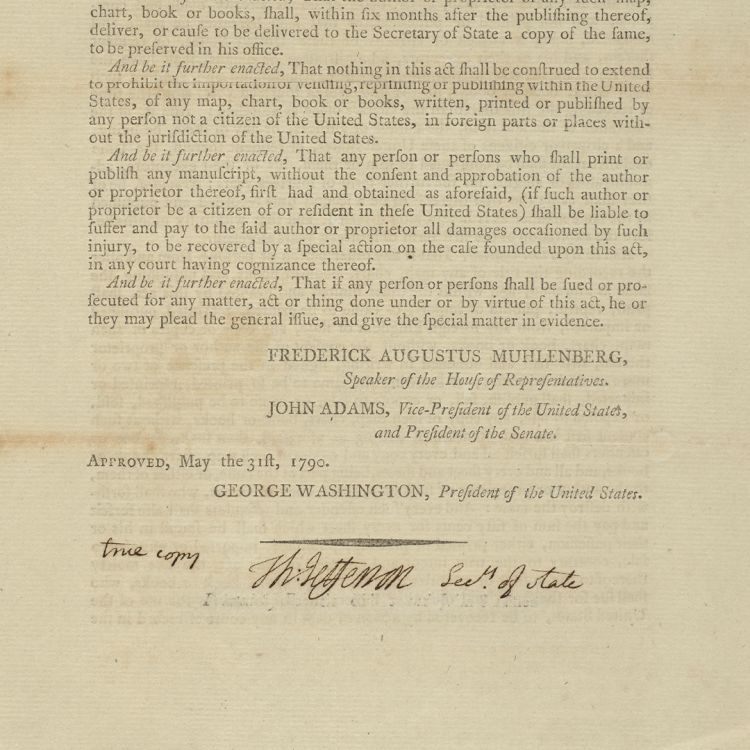 chart, book or books, ſhall, within ſix months after the publiſhing thereof,
deliver, or cauſe to be delivered to the Secretary of State a copy of the ſame,
to be preſerved in his office.
And be it further enacted, That nothing in this act ſhall be conſtrued to extend
to prohibit the importation or vending, reprinting or publiſhing within the United
States, of any map, chart, book or books, written, printed or publiſhed by
any perſon not a citizen of the United States, in foreign parts or places with-
out the juriſdiction of the United States.
And be it further enacted, That any perſon or perſons who ſhall print or
publiſh any manuſcript, without the conſent and approbation of the author
or proprietor thereof, firſt had and obtained as aforeſaid, (if ſuch author or
proprietor be a citizen of or reſident in theſe United States) ſhall be liable to
ſuffer and pay to the ſaid author or proprietor all damages occaſioned by ſuch
injury, to be recovered by a ſpecial action on the caſe founded upon this act,
in any court having cognizance thereof.
And be it further enacted, That if any perſon or perſons ſhall be ſued or pro-
ſecuted for any matter, act or thing done under or by virtue of this act, he or
they may plead the general iſſue, and give the ſpecial matter in evidence.
FREDERICK AUGUSTUS MUHLENBERG,
Speaker of the Houſe of Repreſentatives.
JOHN ADAMS, Vice-Preſident of the United States,
and Preſident of the Senate.
APPROVED, May the 31ſt, 1790.
GEORGE WASHINGTON, Preſident of the United States.
true copy
Th: Jefferson Secy. of State